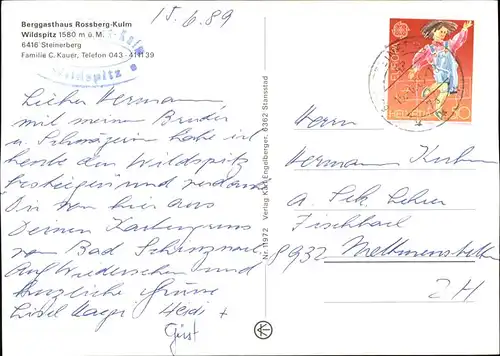 15.6.89
Berggasthaus Rossberg-Kulm
Wildspitz 1580 m ü. M.
6416 Steinerberg
Familie C. Kauer, Telefon 043 - 41 11 39
Wildspitz
Lieber Hermann
mit mein Bruder
u. Schwägerin habe ich
heute den Wildspitz
bestiegen und verdanke
Dir von hier aus
Deinen Kartengruss
von Bad Schinznach
Auf Wiedersehen und
herzliche Grüsse
Heidi +
Nr. 11972 Verlag Karl Engelberger, 6362 Stansstad
EUROPA
HELVETIA
Herrn
Hermann
a. Sek. Lehrer
Fischbach
8932 Mettmenstetten
ZH